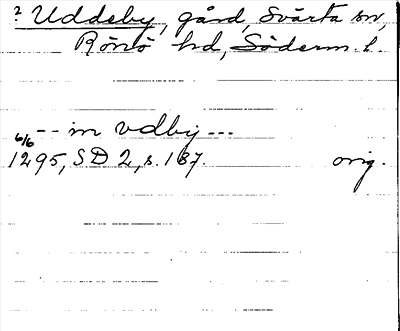 ? Uddeby, gård, Svärta sn,
Rönö hd, Söderm. l.
-- in vdby ---
6/6
1295, SD 2, s. 187. orig.